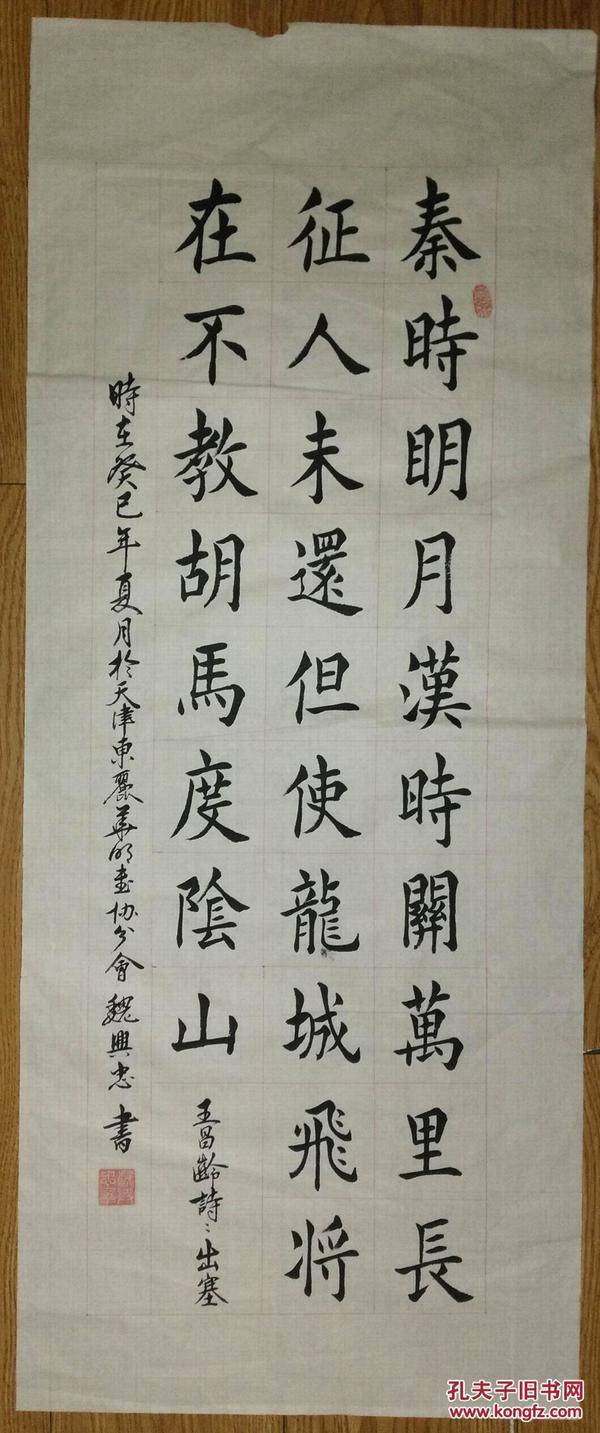 秦時明月漢時關萬里長
征人未還但使龍城飛将
在不教胡馬度陰山
王昌齡詩：出塞
時在癸巳年夏月於天津東麗華明書协分會魏興忠書
孔夫子旧书网
www.kongfz.com